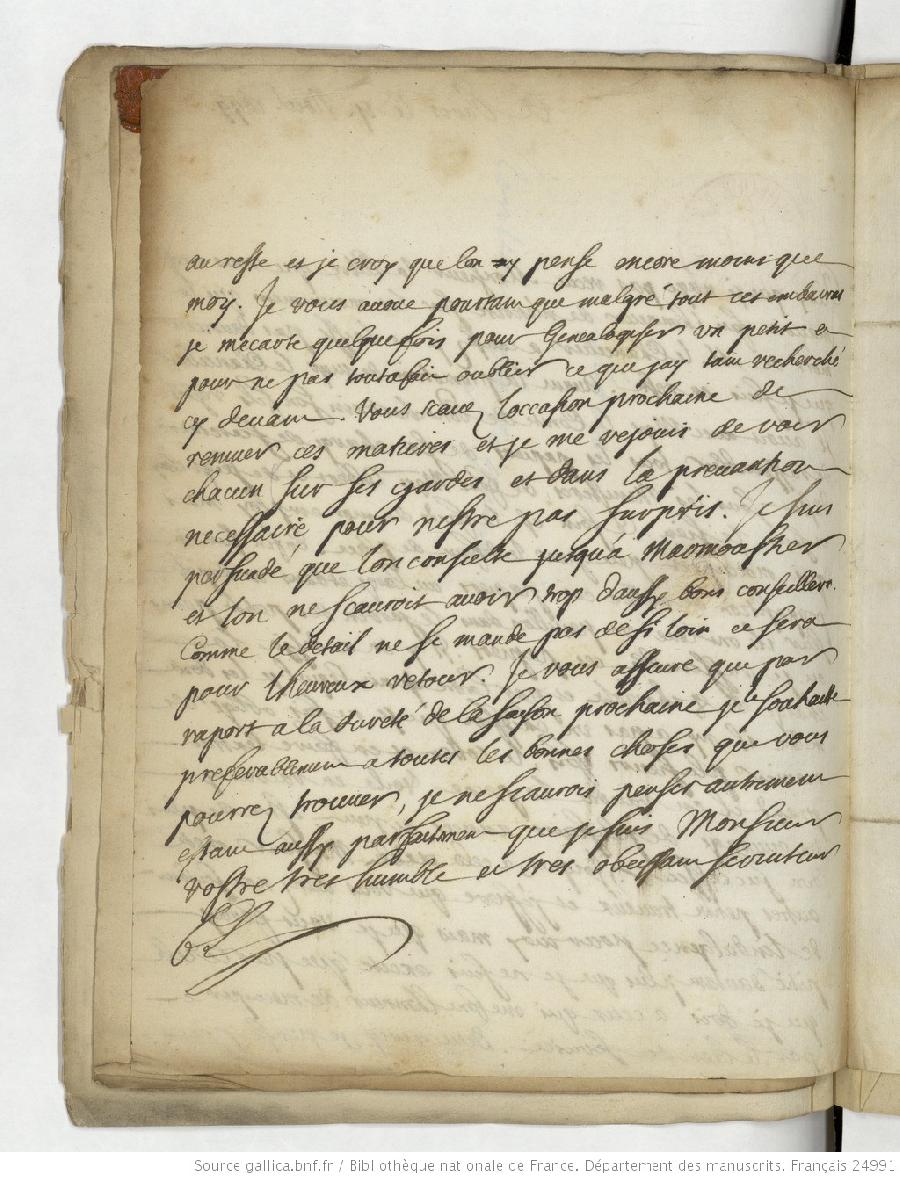 au reste et je croy que lon ny pense encore moins que
moy. Je vous avoue pourtant que malgré tout ces embaras
je mecarte quelquefois pour Genealogiser un petit et
pour ne pas toutafait oublier ce que jay tant recherché
cy devant. Vous scavez loccasion prochaine de
remuer ces matieres et je me rejouis de voir
chacun sur ses gardes et dans la precaution
necessaire pour nestre pas surpris. Je suis
persuadé que lon consulte jusqua Marmoustier
et lon ne scauroit avoir trop daussy bons conseillers.
Comme le detail ne se mande pas desi loin ce sera
pour lheureux retour. Je vous assure que par
raport a la dureté de la saison prochaine je le souhaitte
preferablement a toutes les bonnes choses que vous
pourrez trouver, je ne scaurois penser autrement
estant aussy parfaitement que je suis Monsieur
vostre tres humble et tres obeissant serviteur
Source gallica.bnf.fr / Bibliothèque nationale de France. Département des manuscrits. Français 24991